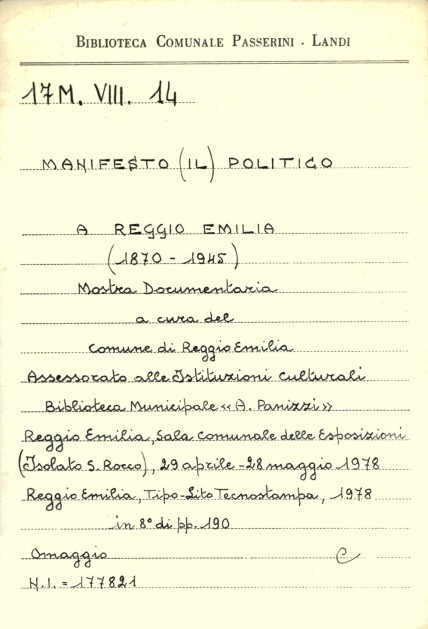 BIBLIOTECA COMUNALE PASSERINI - LANDI
17M. VIII. 14
MANIFESTO (IL) POLITICO
A REGGIO EMILIA
(1870 - 1945)
Mostra Documentaria
a cura del
Comune di Reggio Emilia
Assessorato alle Istituzioni Culturali
Biblioteca Municipale «A. Panizzi»
Reggio Emilia, Sala Comunale delle Esposizioni
(Isolato S. Rocco), 29 aprile - 28 maggio 1978
Reggio Emilia, Tipo-Lito Tecnostampa, 1978
in 8° di pp. 190
Omaggio C
N.I. = 177821